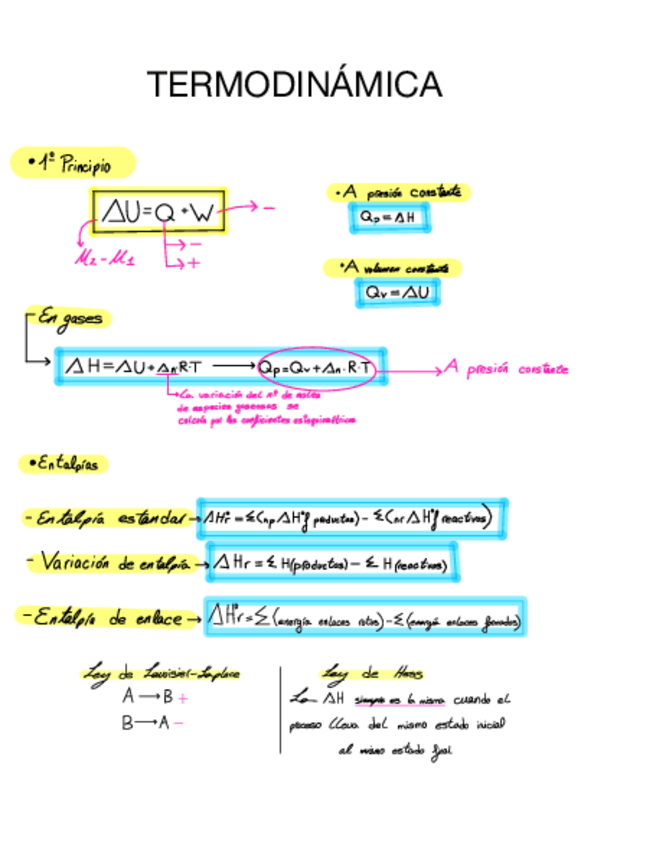 TERMODINÁMICA
•1º Principio
ΔU=Q+W → -
→ -
→ +
U₂-U₁
•A presión constante
Qp=ΔH
•A volumen constante
Qv=ΔU
En gases
ΔH=ΔU+Δn·R·T → Qp=Qv+Δn·R·T → A presión constante
La variación del nº de moles
de especies gaseosas se
calcula por los coeficientes estequiométricos
•Entalpías
-Entalpía estandar → ΔHºr = Σ(np ΔHºf productos) - Σ(nr ΔHºf reactivos)
- Variación de entalpía → ΔHr = Σ H(productos) - Σ H(reactivos)
-Entalpía de enlace → ΔHºr=Σ(energía enlaces rotos)-Σ(energía enlaces formados)
Ley de Lavoisier-Laplace
A → B +
B → A -
Ley de Hess
La ΔH siempre es la misma cuando el
proceso lleva del mismo estado inicial
al mismo estado final